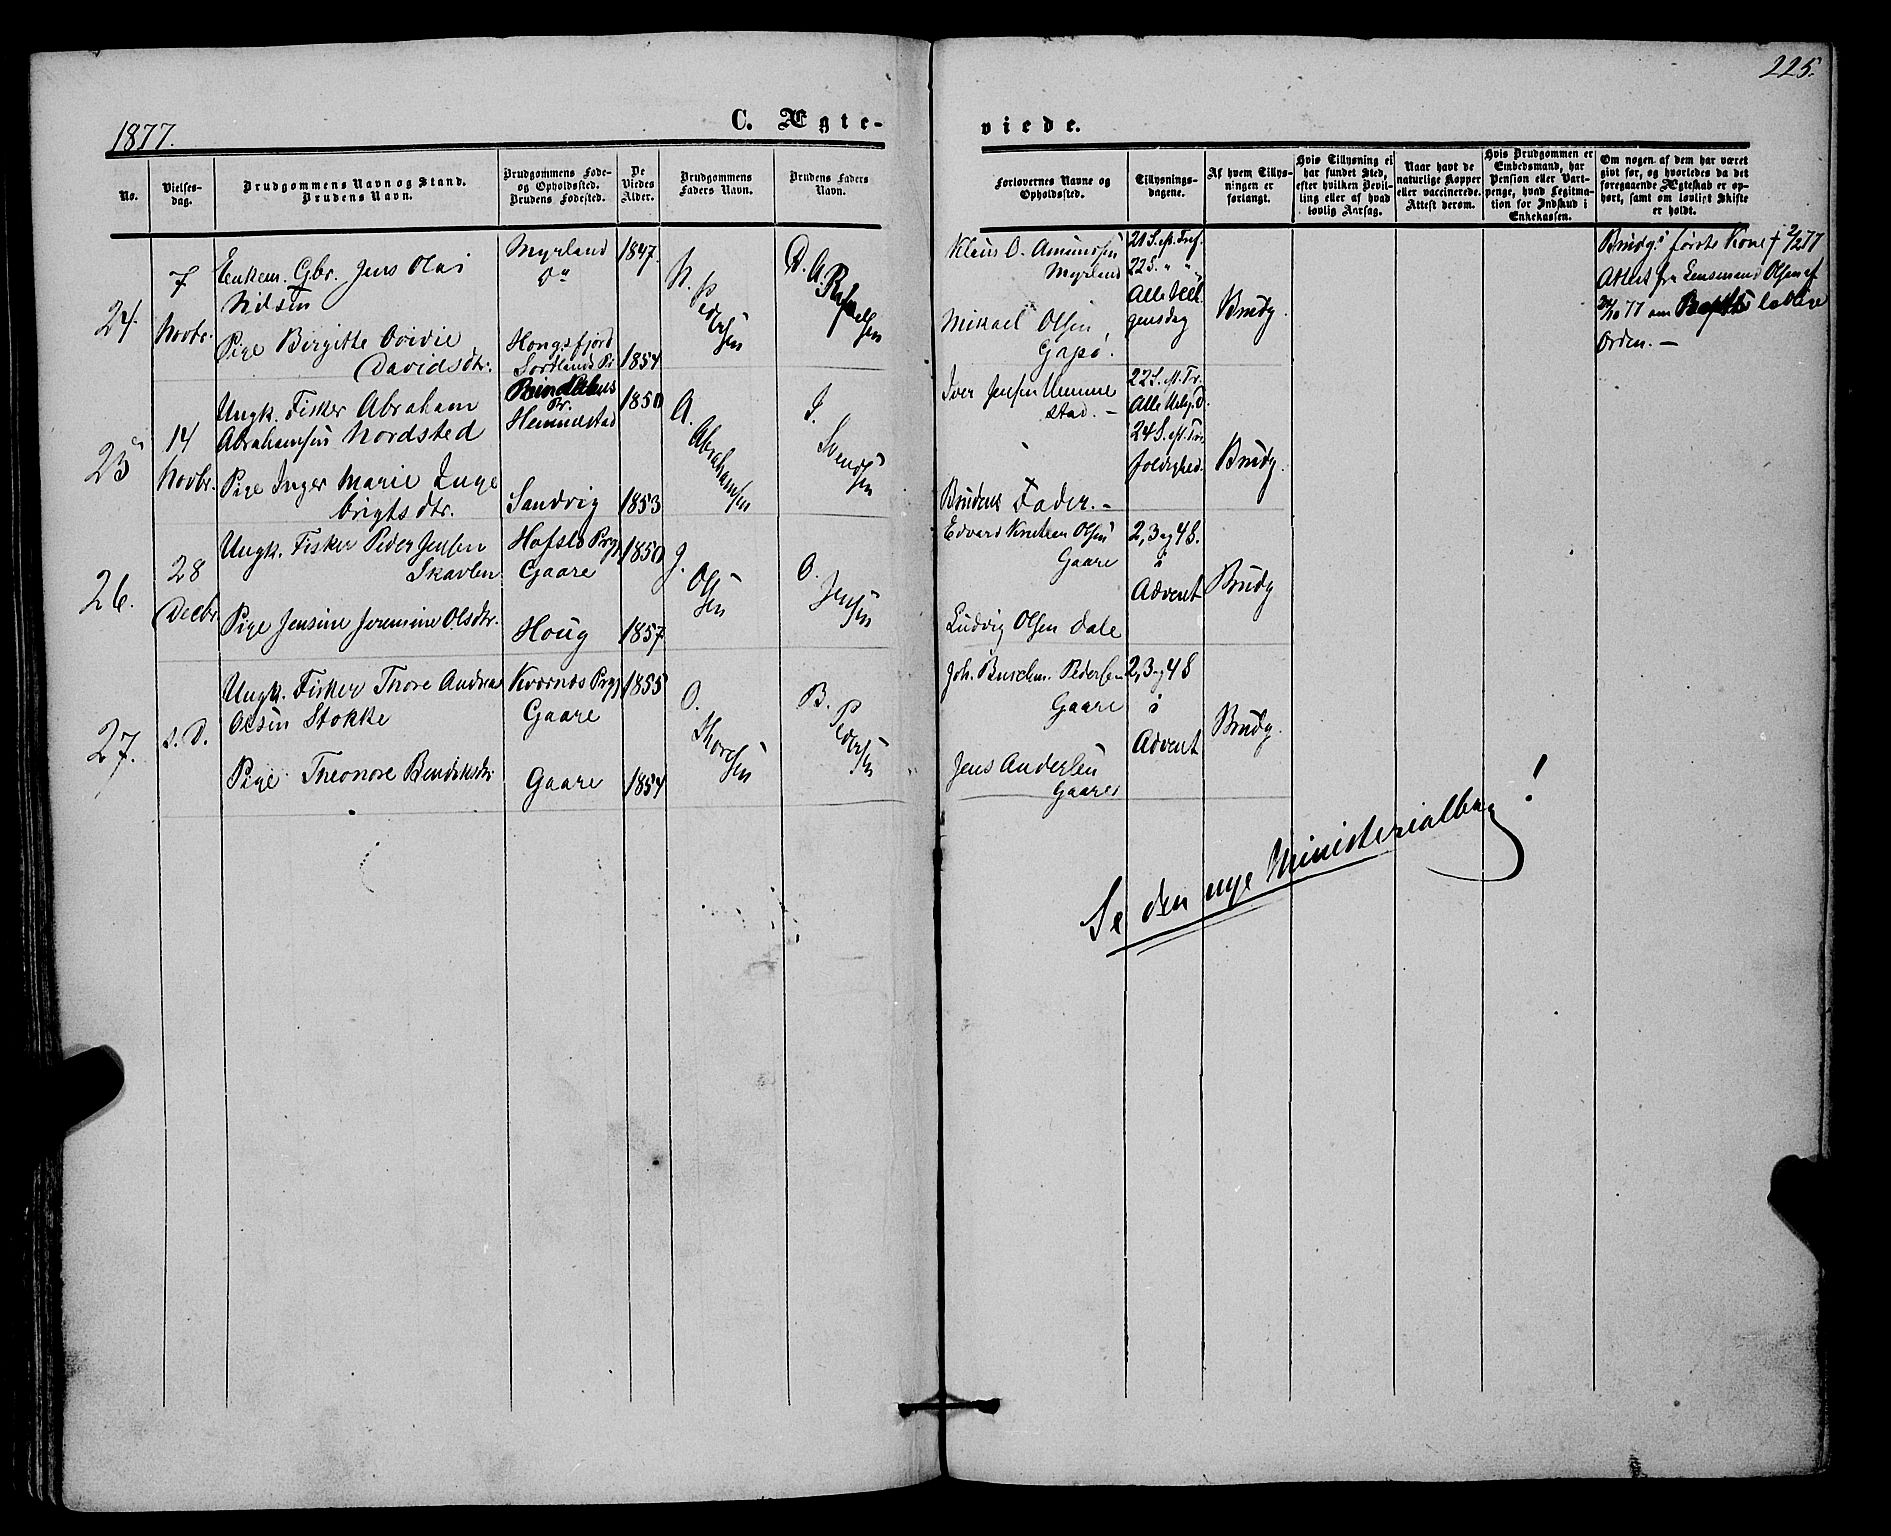 1877.
C. Ægte-
No.
Vielses-
dag.
Brudgommens Navn og Stand.
Brudens Navn.
Brudgommens Føde-
og Opholdssted.
Brudens Fødested.
De
Viedes
Alder.
Brudgommens
Faders Navn.
Brudens Faders
Navn.
24.
7
Novbr.
Enkem. Gbr. Jens Olai
Nilsen
Pige Birgitte Ovidie
Davidsdtr.
Myrland
do
Hongsfjord
Sortlands Pr
1847.
1854
N.
Pedersen
D. A.
25
14
Novbr.
Ungk. Fisker Abraham
Abrahamsen Nordsted
Pige Inger Marie Inge
brigtsdtr.
Pr.
Hemmestad
Sandvig
1850
1853
A.
Abrahamsen
I.
Svendsen
26.
28
Decbr
Ungk. Fisker Peder Jensen
Skavlen
Pige Jensine Jeremine Olsdtr.
Hafslo Prgj
Gaare
Houg
1850
1857
J.
Olsen
O.
Jensen
27.
s. D.
Ungk. Fisker Thore Andreas
Olsen Stokke
Pige Theonore Bendiksdtr
Kvernes Prgj
Gaare
Gaare
1855
1854
O.
Thoresen
B.
Pedersen
225.
viede.
Forlovernes Navne og
Opholdssted.
Tillysnings-
dagene.
Af hvem Tillys-
ningen er
forlangt.
Hvis Tillysning ei
har fundet Sted,
efter hvilken Bevil-
ling eller af hvad
lovlig Aarsag.
Naar havt de
naturlige Kopper
eller vaccinerede.
Attest derom.
Hvis Brudgommen er
Embedsmand, har
Pension eller Vart-
penge, hvad Legitima-
tion for Indskud i
Enkekassen.
Om nogen af dem har været
gift før, og hvorledes da det
foregaaende Ægteskab er op-
hørt, samt om lovligt Skifte
er holdt.
Klaus O. Amundsen
Myrland
Mikael Olsen
21 S. eft. Tref.
22 S. " "
Alle Hel
gensdag
Brudg.
Brudgs første Kone † 2/2 77
Attest fra Lensmand Olsen af
77 om
Orden. —
Iver Jensen Hemme
stad. —
Brudens Fader. —
22 S. eft. Tr.
Alle Helg. D.
24 S. eft. Tre
foldighed.
Brudg.
Edvard Knutsen Olsen
Gaare
Ludvig Olsen Dale
2, 3 og 4 S.
i
Advent
Brudg
Joh. Buschm. Pedersen
Gaare
Jens Andersen
Gaare
2, 3 og 4 S
i
Advent
Brudg.
Se den nye Ministerialbog!